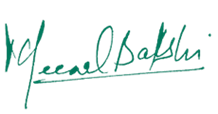 Meenal Bakshi